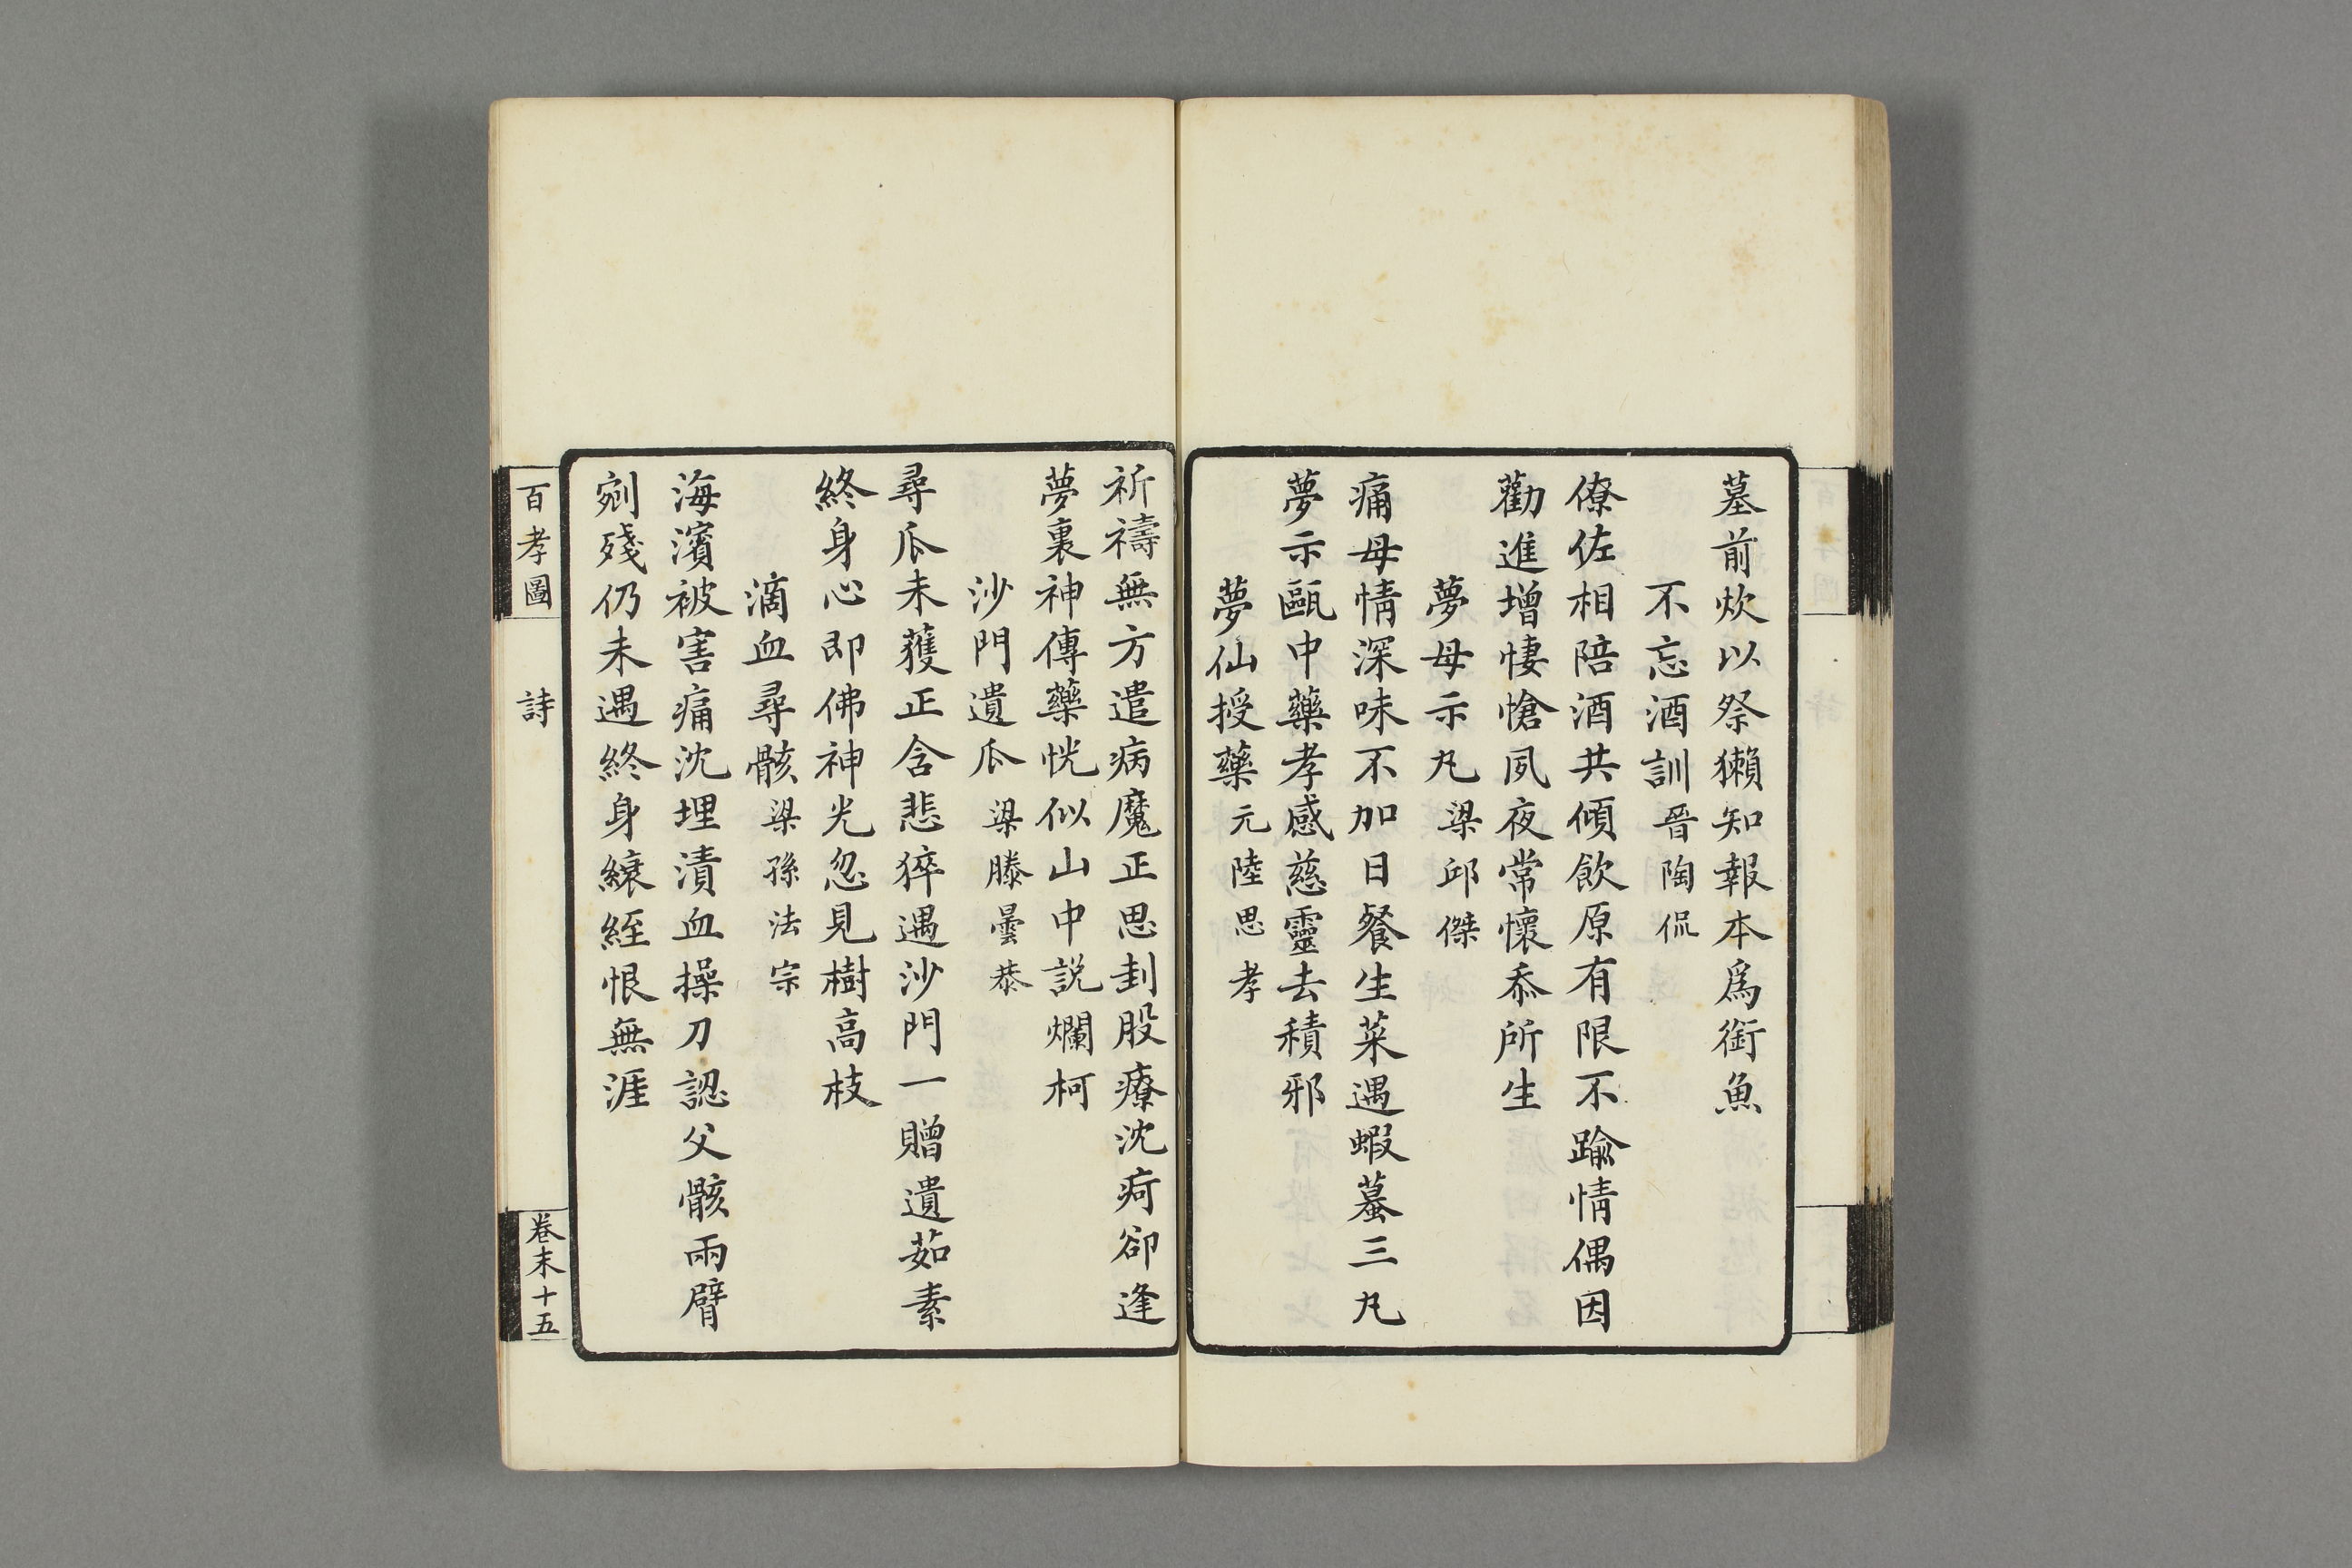 墓前炊以祭獺知報本爲銜魚
不忘酒訓晉陶侃
僚佐相陪酒共傾飲原有限不踰情偶因
勸進增悽愴夙夜常懷忝所生
夢母示丸梁邱傑
痛母情深味不加日餐生菜遇蝦蟇三丸
夢示甌中藥孝感慈靈去積邪
夢仙授藥元陸思孝
祈禱無方遣病魔正思刲股療沈疴卻逢
夢裏神傳藥恍似山中説爛柯
沙門遺瓜梁滕曇恭
尋瓜未獲正含悲猝遇沙門一贈遺茹素
終身心即佛神光忽見樹高枝
滴血尋骸梁孫法宗
海濱被害痛沈埋漬血操刀認父骸兩臂
剜殘仍未遇終身縗絰恨無涯
百孝圖
詩
卷末十五